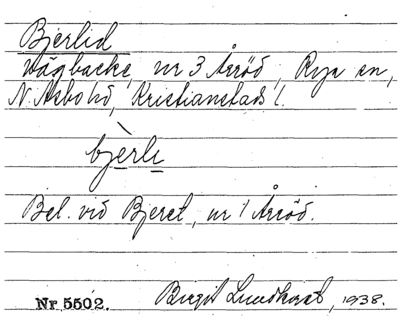 Bjerlid
Vägbacke, nr 3 Åröd, Rya sn,
N. Åsbo hd, Kristianstads l.
bjèrli
Bel. vid Bjeret, nr 1 Åröd.
Nr 5502. Birgit Lundkvist, 1938.